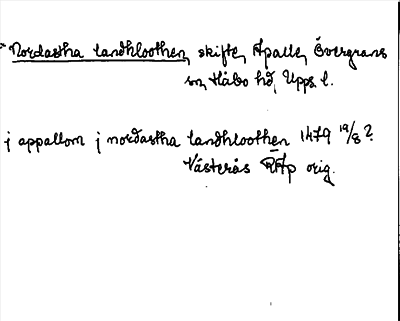 Nordastha landhloothen, skifte, Apalle, Övergrans
sn, Håbo hd, Upps. l.
j appallom j nordastha landhloothen 1479 19/8 ?
Västerås RAp orig.